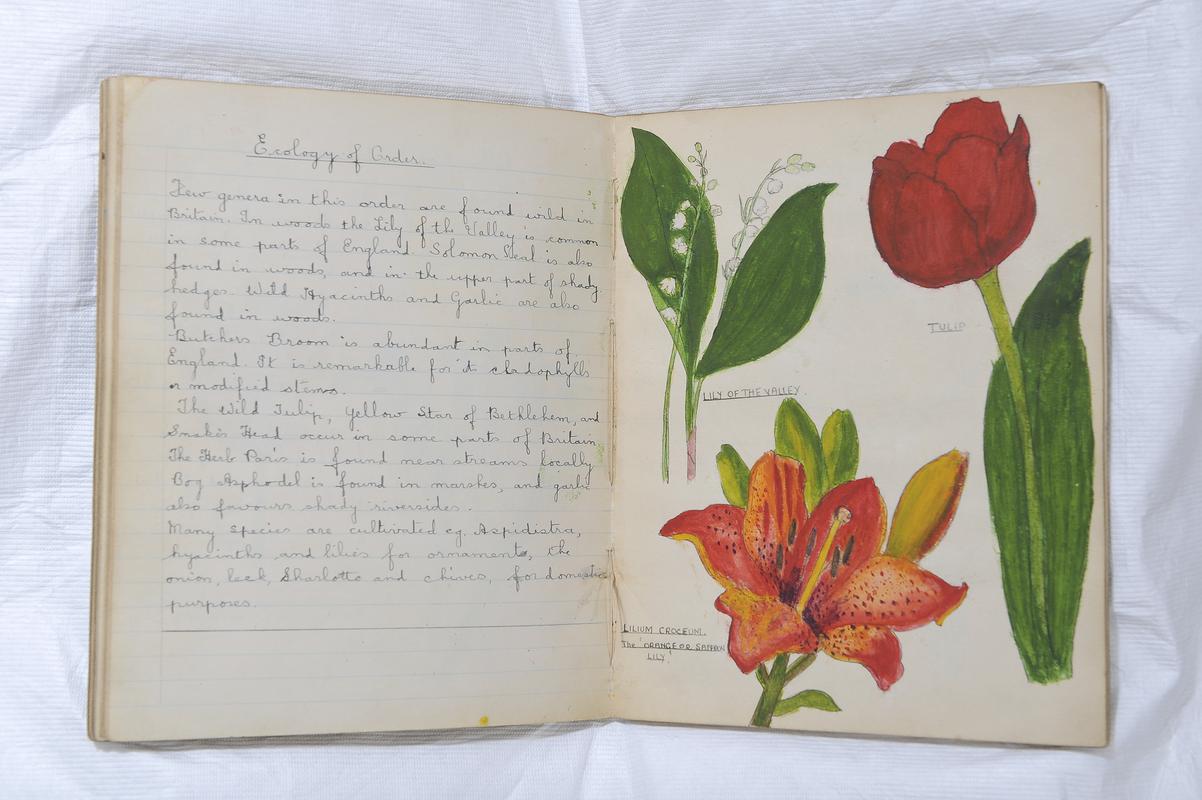 Ecology of Order.
Few genera in this order are found wild in
Britain. In woods the Lily of the Valley is common
in some parts of England. Solomon Seal is also
found in woods, and in the upper part of shady
hedges. Wild Hyacinths and Garlic are also
found in woods.
Butchers Broom is abundant in parts of
England. It is remarkable for it cladophylls
or modified stems.
The Wild Tulip, Yellow Star of Bethlehem, and
Snakes Head occur in some parts of Britain.
The Herb Paris is found near streams locally
Bog Asphodel is found in marshes, and garlic
also favours shady riversides.
Many species are cultivated eg. Aspidistra,
hyacinths and lilies for ornaments, the
onion, leek, Sharlotte and chives, for domestic
purposes.
LILY OF THE VALLEY.
TULIP
LILIUM CROCEUM.
The "ORANGE OR SAFFRON
LILY."